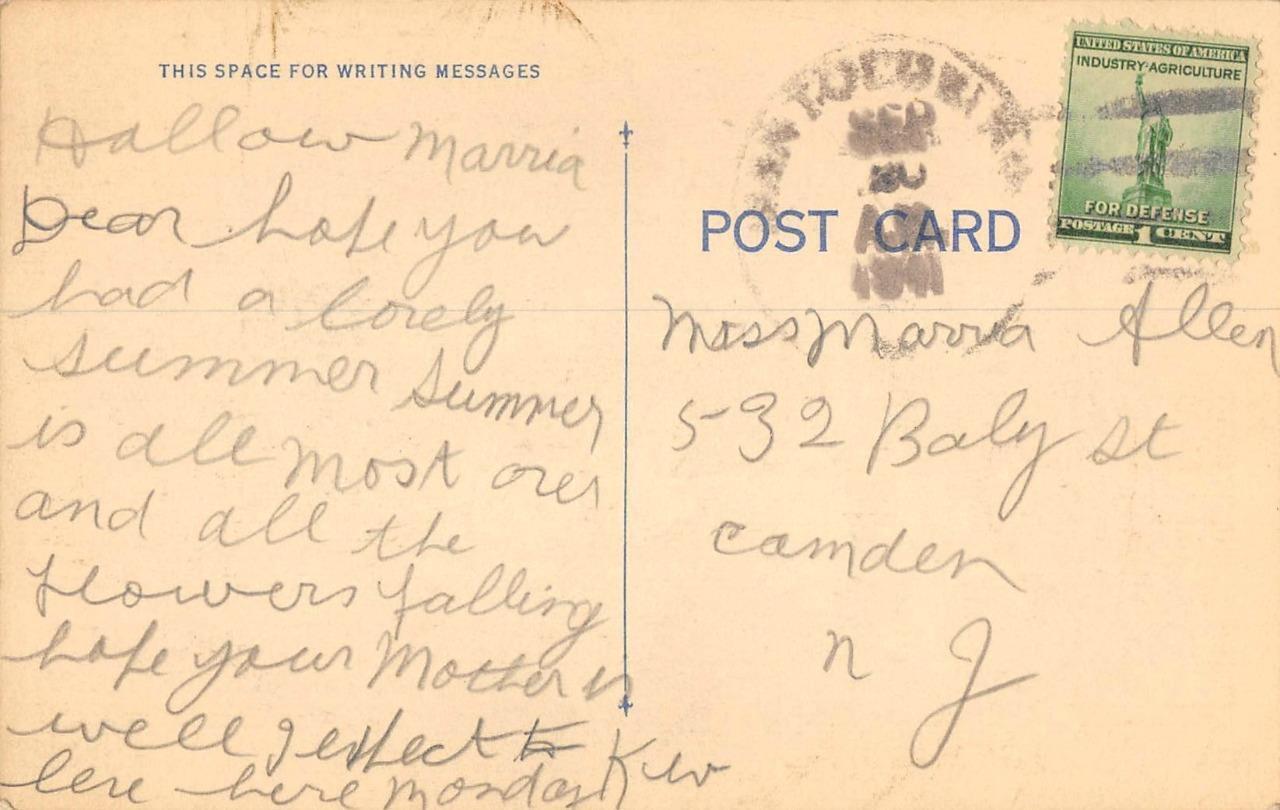 THIS SPACE FOR WRITING MESSAGES
Hallow Marria
Dear hope you
had a lovely
summer summer
is all most over
and all the
flowers falling
hope your Mother is
well I exspect to
leve here Monday
POST CARD
SEP
AM
1941
UNITED STATES OF AMERICA
INDUSTRY·AGRICULTURE
FOR DEFENSE
POSTAGE 1 CENT
Miss Marria Allen
532 Baly St
Camden
N J